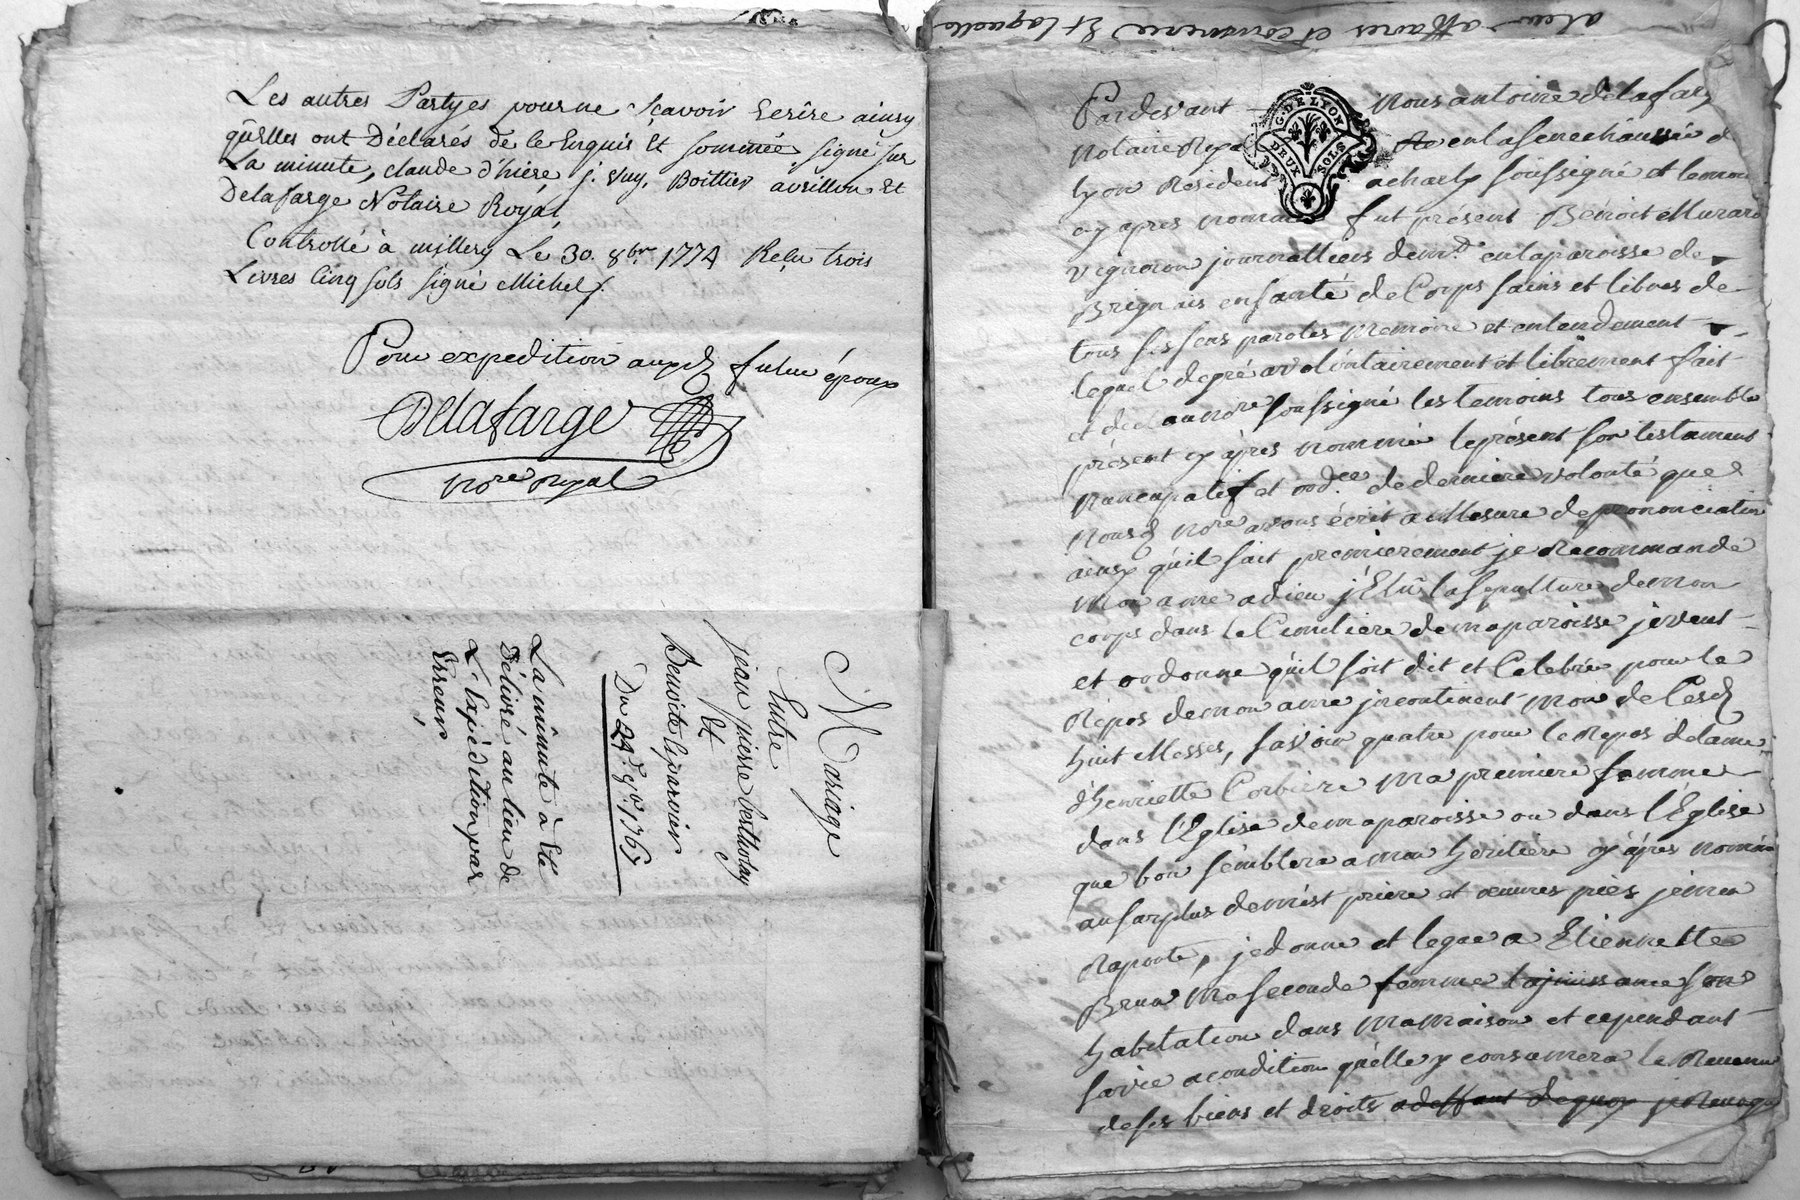 Les autres Partyes pour ne Scavoir Ecrire ainsy
qu'Elles ont Déclarés de ce Enquis Et sommée, signé sur
La minute, claude d'hiere j. Vuy, Boittier avrillon Et
Delafarge Notaire Royal,
Controllé à millery Le 30. 8bre 1774 Reçu trois
Livres Cinq sols signé Michel
Pour expedition auxd. futur époux
Delafarge
Nore Royal
Mariage
Entre
jean
Et
Benoite
Du 24e 9bre 1767
La minute à Eté
Délivré au lieu de
L'Expédition par
Erreur,
a leur affaires et commerce Et laquelle
Pardevant Nous antoine delafarge
Notaire Roya en la senechaussée de
Lyon Résident a charly soussigné et temoin
cy après nommé fut présent Benoit Murard
vigneron journallier demt. en la paroisse de
Brignais en santé de Corps sains et libres de
tous ses sens paroles Memoire et entendement
lequel de gré a volontairement et librement fait
et declaré nore soussigné les temoins tous ensemble
présent cy après nommé le présent son testament
nuncupatif et ordce de derniere volonté que
Nousd. Nore avons écrit a Mesure de prononciation
ainsy qu'il suit premierement je Recommande
Mon ame a dieu j'Elû la sepulture de mon
corps dans le Cimetiere de ma paroisse je veut
et ordonne qu'il soit dit et Celebré pour le
Repos de mon ame jncontinent Mon deces
huit Messes, savoir quatre pour le Repos de l'ame
d'henriette Corbiere Ma premiere femme
dans l'Eglise de ma paroisse ou dans l'Eglise
que bon semblera a mon heritiere cy après nommée
au surplus de mest priere et œuvres pies je m'en
Raporte, je donne et legue a Etiennette
Brun Ma seconde femme la jouissance son
habitation dans Ma Maison et cependant
sa vie a condition qu'elle y consumera le Revenu
de ses biens et droits a deffaut de quoy je Revoque
G. DE LYON
DEUX SOLS